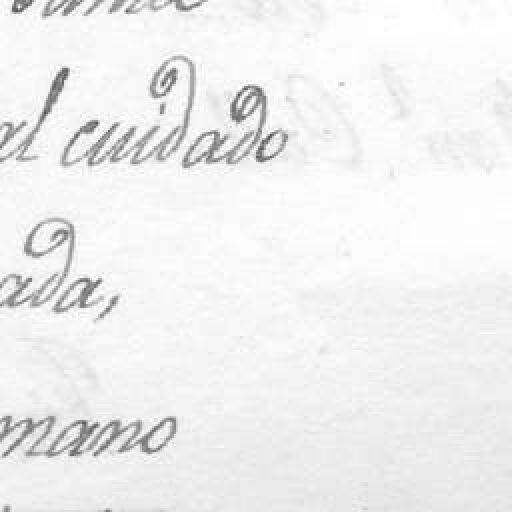 al cuidado
ada,
mano